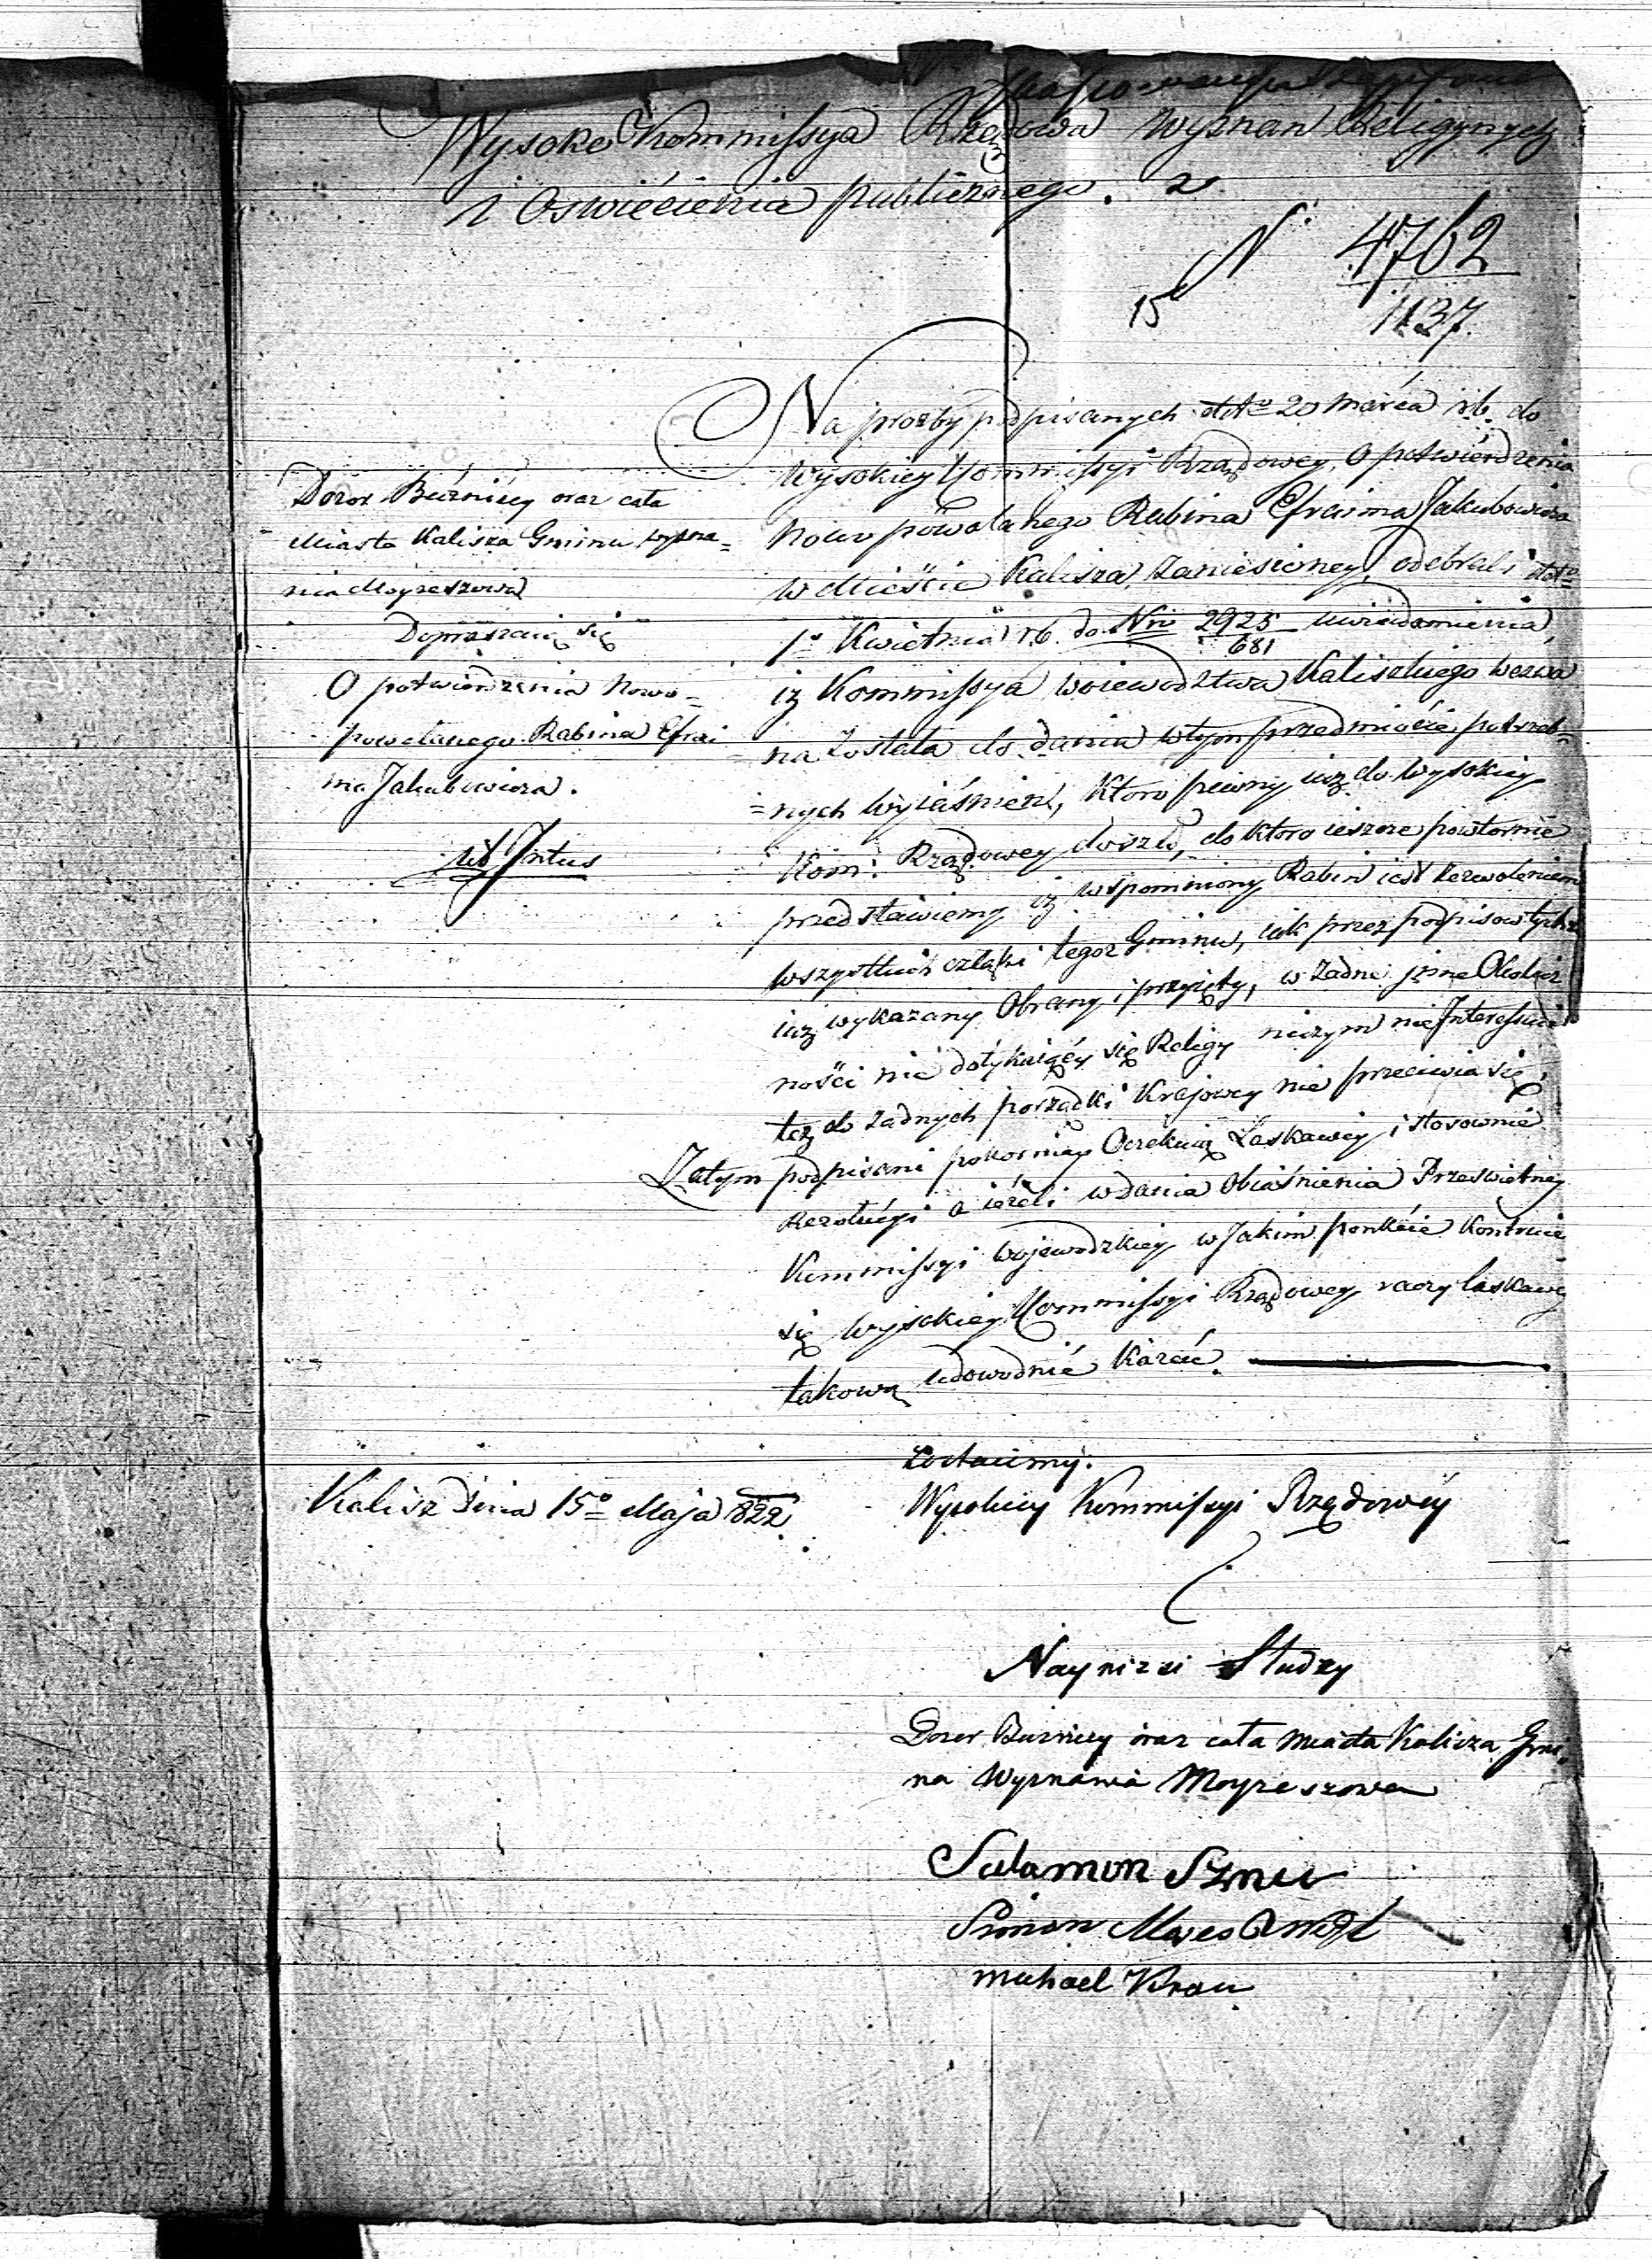 Wysoka Kommissya Rządowa Wyznań Religynych
i Oswiécienia publicznego. 2
N: 4762
15 1137.
Dozor Búznićy oraz cała
Miasta Kalisza Gminu wyzna=
nia Moyzeszowa
Dopraszaią się
O potwierdzenia Nowo=
powołanego Rabina Efrai
ma Jakubowicza.
ut Intus
Na prozby podpisanych dtto 20 Marća r.b. do
Wysokiey Kommissyi Rządowey, O potwiérdzenia
Nowo powołanego Rabina Efraima Jakubowicza
w Mieście Kalisza, zaniesioney, odebrali dtto
1o Kwietnia r.b. do Nro 2925/681 uwiadomienia,
iz Kommissya woiewodztwa Kaliskiego wezwa
na została do dania w tym przedmioćie potrzeb=
=nych Wyiaśnień, Ktoro pewny iuz do Wysokiey
Kom: Rządowey doszło, do ktoro ieszcze powtornie
przedstawiemy iz wspomniony Rabin iest zezwoleniem
wszystkich członki tegoz Gminu, iak przez podpisow tychz
iuz wykazany Obrany i przyięty, w żadne inne Okolicz
ności nie dotykaiąćy się Religy niczym nie Interessuie
tez do żadnych porządki Krajowey nie przeciwia się,
Zatym podpisani pokorniey Oczekuią Łaskawey i stosownie
Rezolućyi a ieżeli w dania Obiaśnienia Prześwietney
Kommissyi Wojewodzkiey w Jakim ponkćie Kontruie
się Wysokiey Kommissyi Rządowey raczy łaskawie
takową udowodnić Kazać.
Zostaiemy.
Kalisz Dnia 15o Maja 822
Wysokiey Kommissyi Rządowéy
Naynizsi Słudzy
Dozor Buznicy oraz cała Miasta Kalisza Gmi
na Wyznania Moyzeszowa
Salamon
Simon
Michael